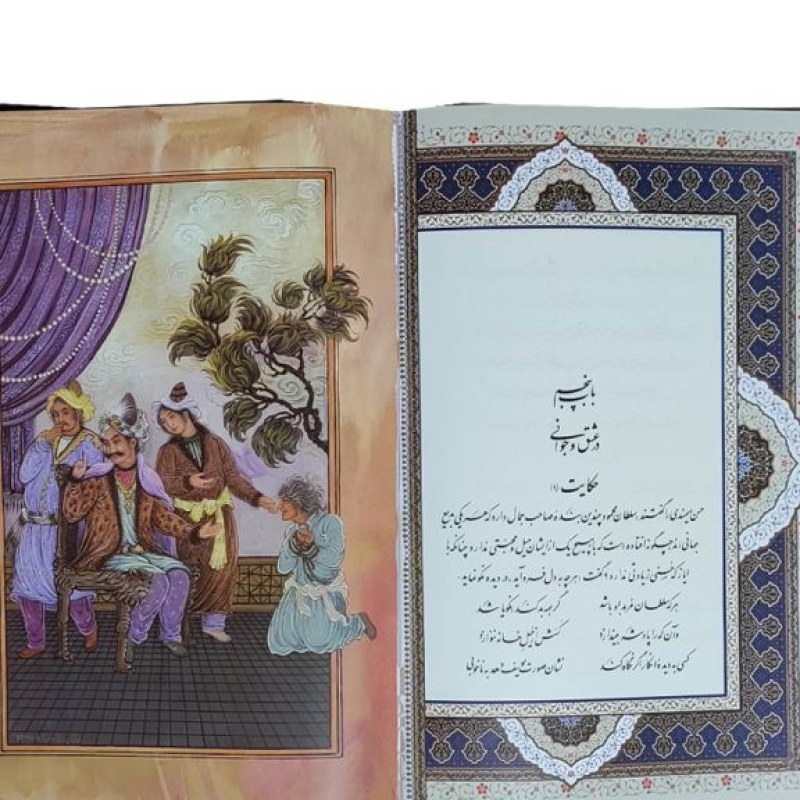 باب پنجم
در عشق و جوانی
حکایت (۱)
حسن میمندی را گفتند: سلطان محمود چندین بندهٔ صاحب جمال دارد که هر یکی بدیع
جهانی‌اند چگونه افتاده است که با هیچ یک از ایشان میل و محبتی ندارد چنانکه با
ایاز که حسنی زیادتی ندارد؟ گفت: هر چه به دل فرو آید، در دیده نکو نماید.
هر که سلطان مرید او باشد گر همه بد کند نکو باشد
و آن که را پادشه بیندازد کسش از خیل خانه ننوازد
کسی به دیدهٔ انکار اگر نگاه کند نشان صورت یوسف دهد به ناخوبی